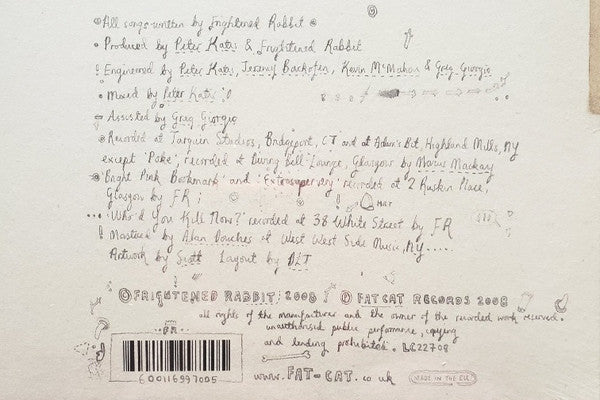 All songs written by Frightened Rabbit
Produced by Peter Katis & Frightened Rabbit
Engineered by Peter Katis, Jeremy Backofen, Kevin McMahon & Greg Giorgio
Mixed by Peter Katis
Assisted by Greg Giorgio
Recorded at Tarquin Studios, Bridgeport, CT and at Adam's Pit, Highland Mills, NY
except 'Poke', recorded at Diving Bell Lounge, Glasgow by Marcus Mackay
'Bright Pink Bookmark' and 'Extrasupervery' recorded at 2 Ruskin Place,
Glasgow by FR ;
'Who'd You Kill Now?' recorded at 38 White Street by FR
Mastered by Alan Douches at West West Side Music, NY.....
Artwork by Scott Layout by DLT
© FRIGHTENED RABBIT 2008 ℗ FATCAT RECORDS 2008
all rights of the manufacturer and the owner of the recorded work reserved.
unauthorised public performance, copying
and lending prohibited. LC22708
FR
600116997005
www.FAT-CAT.co.uk
MADE IN THE EU